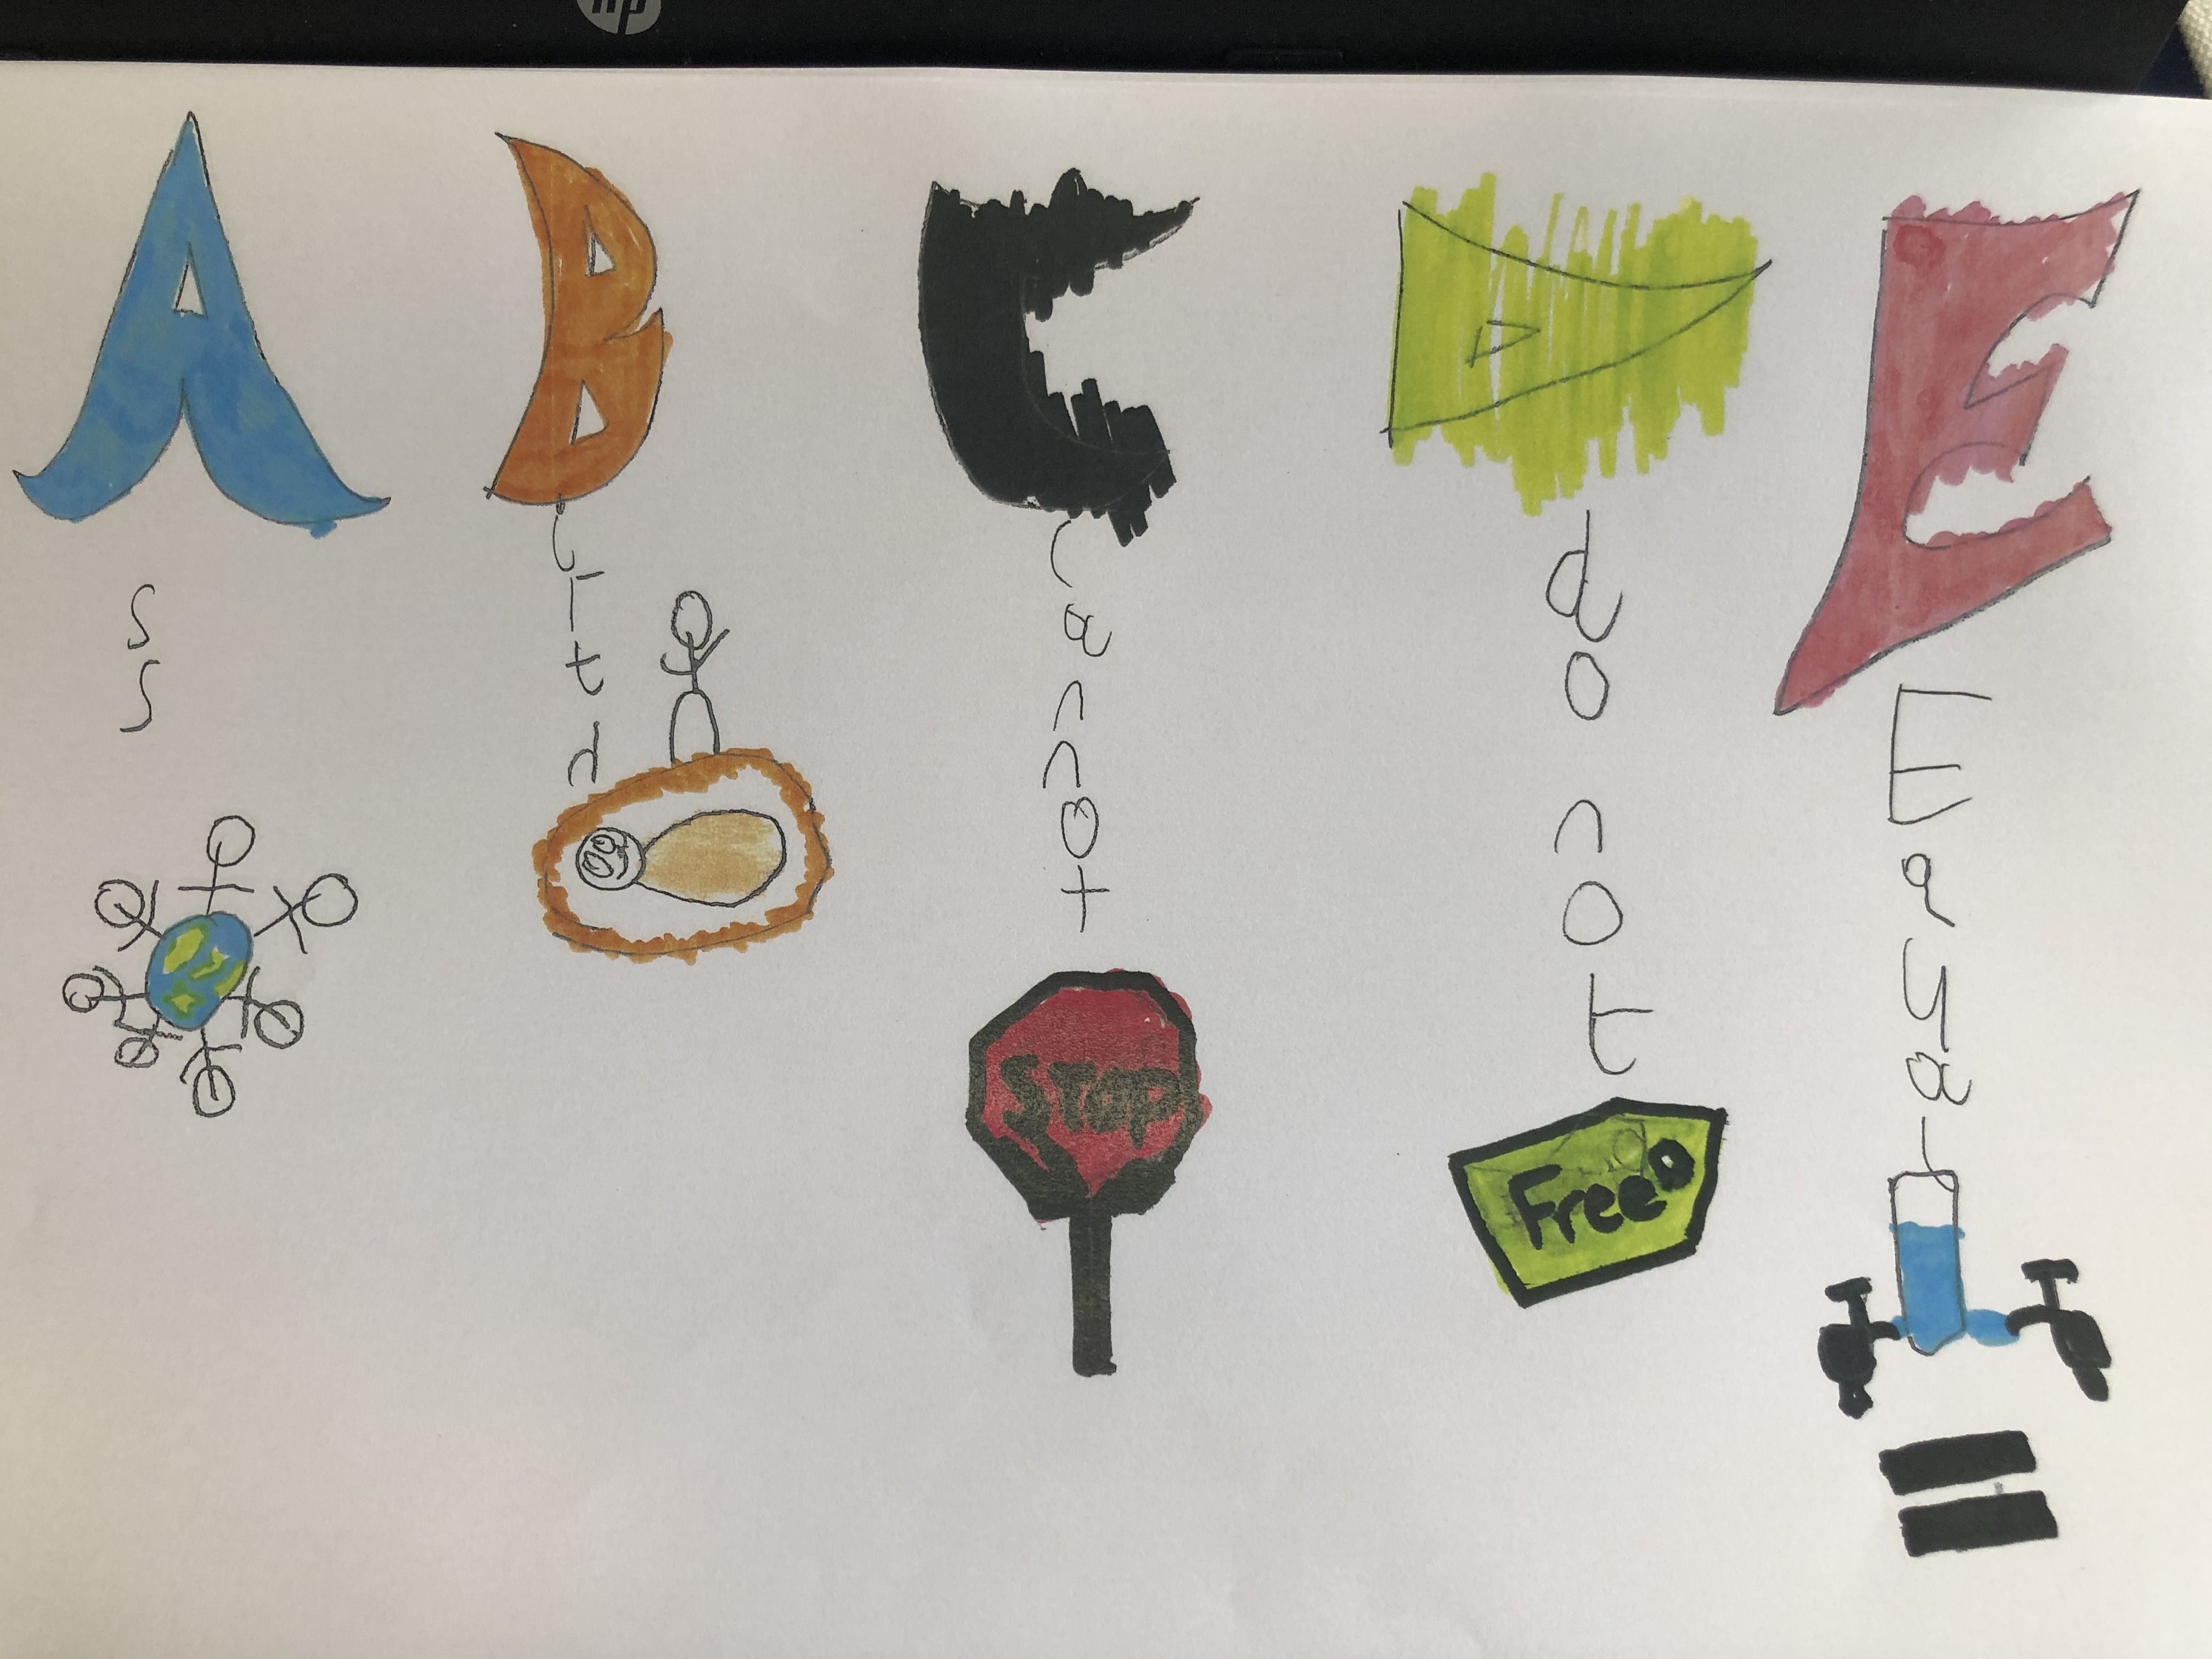 hp
A
ss
B
irth
C
cannot
STOP
D
do not
Free
E
Equal
=